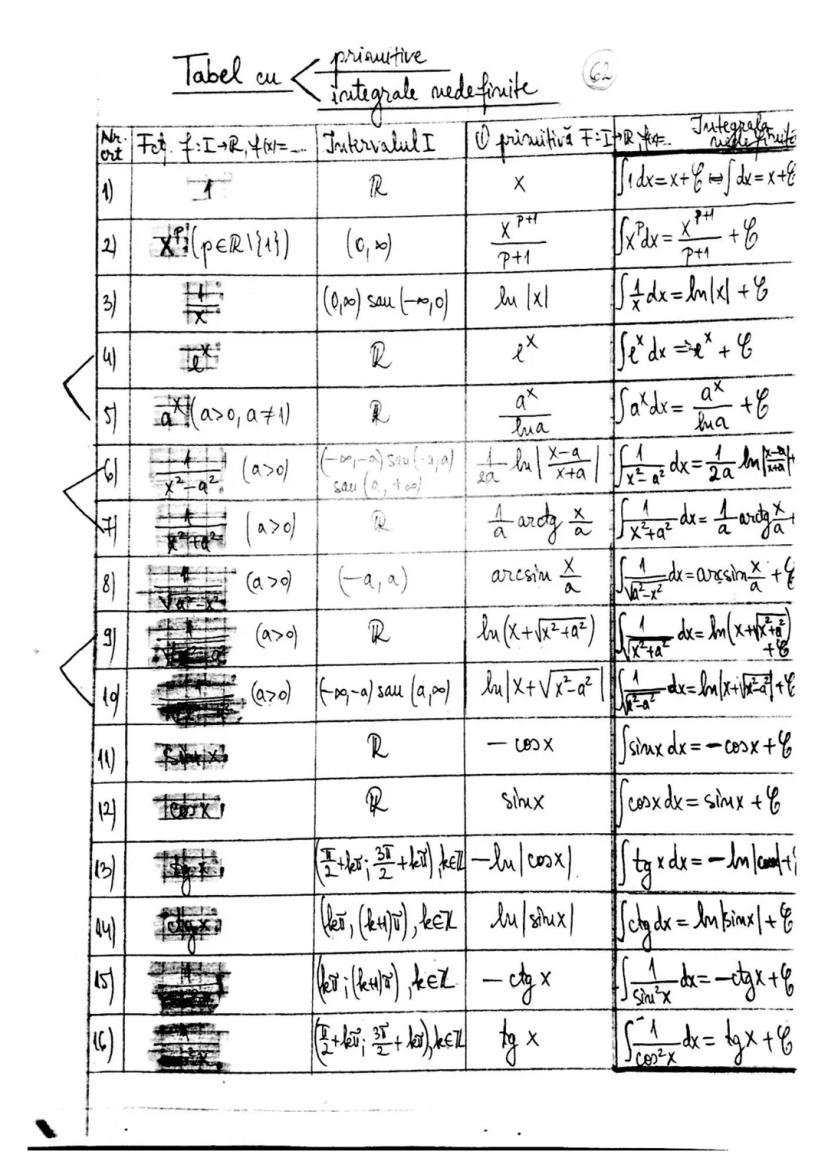 Tabel cu
primitive
integrale nedefinite
62
Nr. crt | Fcţ. f: I→ℝ, f(x)=... | Intervalul I | O primitivă F: I→ℝ, f(x)=.. | Integrala nedefinită
1) | 1 | ℝ | x | ∫1 dx = x + C ⇔ ∫dx = x + C
2) | x^p (p∈ℝ\{1}) | (0, ∞) | x^(p+1)/(p+1) | ∫x^p dx = x^(p+1)/(p+1) + C
3) | 1/x | (0,∞) sau (-∞,0) | ln |x| | ∫1/x dx = ln|x| + C
4) | e^x | ℝ | e^x | ∫e^x dx = e^x + C
5) | a^x (a>0, a≠1) | ℝ | a^x/ln a | ∫a^x dx = a^x/ln a + C
6) | 1/(x²-a²) (a>0) | (-∞,-a) sau (-a,a) sau (a,+∞) | 1/2a ln|(x-a)/(x+a)| | ∫1/(x²-a²) dx = 1/2a ln|(x-a)/(x+a)| +
7) | 1/(x²+a²) (a>0) | ℝ | 1/a arctg x/a | ∫1/(x²+a²) dx = 1/a arctg x/a +
8) | 1/√(a²-x²) (a>0) | (-a, a) | arcsin x/a | ∫1/√(a²-x²) dx = arcsin x/a + C
9) | (a>0) | ℝ | ln(x+√(x²+a²)) | ∫1/√(x²+a²) dx = ln(x+√(x²+a²)) + C
10) | (a>0) | (-∞,-a) sau (a,∞) | ln|x+√(x²-a²)| | ∫1/√(x²-a²) dx = ln|x+√(x²-a²)| + C
11) | sin x | ℝ | - cos x | ∫sin x dx = - cos x + C
12) | cos x | ℝ | sin x | ∫cos x dx = sin x + C
13) | tg x | (π/2+kπ; 3π/2+kπ), k∈ℤ | -ln|cos x| | ∫tg x dx = - ln|cos x| +
14) | ctg x | (kπ, (k+1)π), k∈ℤ | ln|sin x| | ∫ctg dx = ln|sin x| + C
15) | (kπ; (k+1)π), k∈ℤ | - ctg x | ∫1/sin²x dx = -ctg x + C
16) | (π/2+kπ; 3π/2+kπ), k∈ℤ | tg x | ∫1/cos²x dx = tg x + C